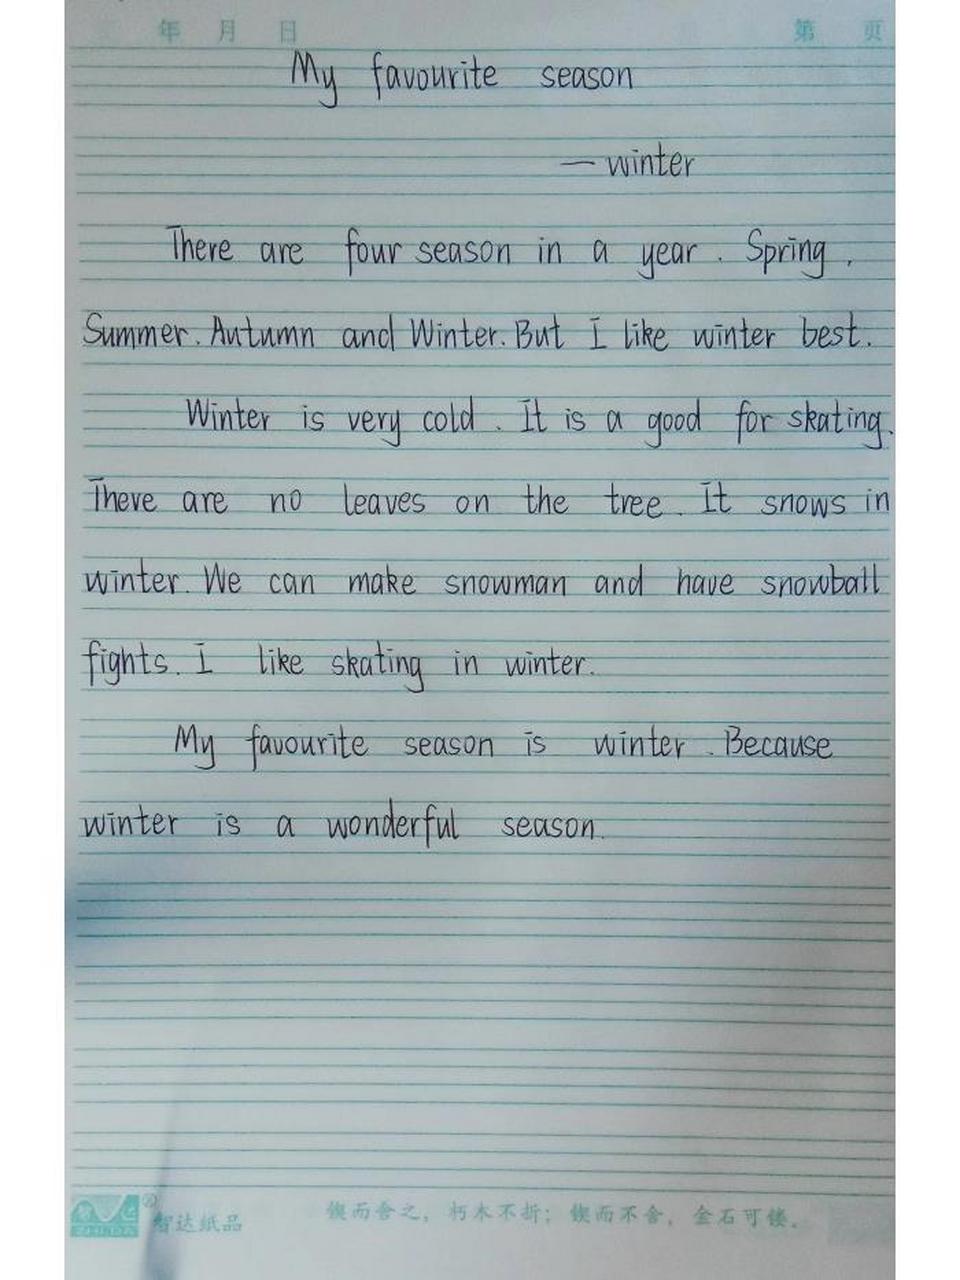 年 月 日 第 页
My favourite season
— winter
There are four season in a year. Spring,
Summer. Autumn and Winter. But I like winter best.
Winter is very cold. It is a good for skating.
There are no leaves on the tree. It snows in
winter. We can make snowman and have snowball
fights. I like skating in winter.
My favourite season is winter. Because
winter is a wonderful season.
智达 ®
ZHI DA
智达纸品
锲而舍之，朽木不折；锲而不舍，金石可镂。